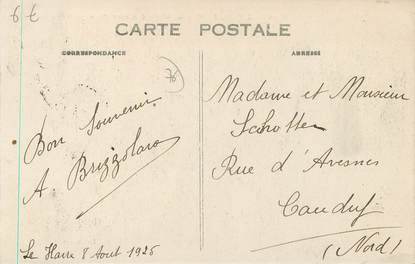 6 €
CARTE POSTALE
CORRESPONDANCE
ADRESSE
76
Bon Souvenir
A. Brizzolara
Le Havre 8 Août 1926
Madame et Monsieur
Schotter
Rue d'Avesnes
(Nord)